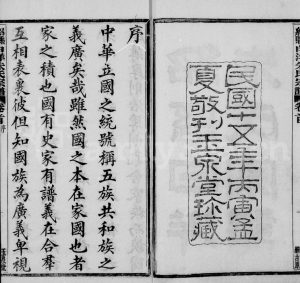 民國十五年丙寅孟
夏敬刊玉泉堂珍藏
序
中華立國之統號稱五族共和族之
義廣矣哉雖然國之本在家國也者
家之積也國有史家有譜義在合羣
互相表裏彼但知國族為廣義卑視